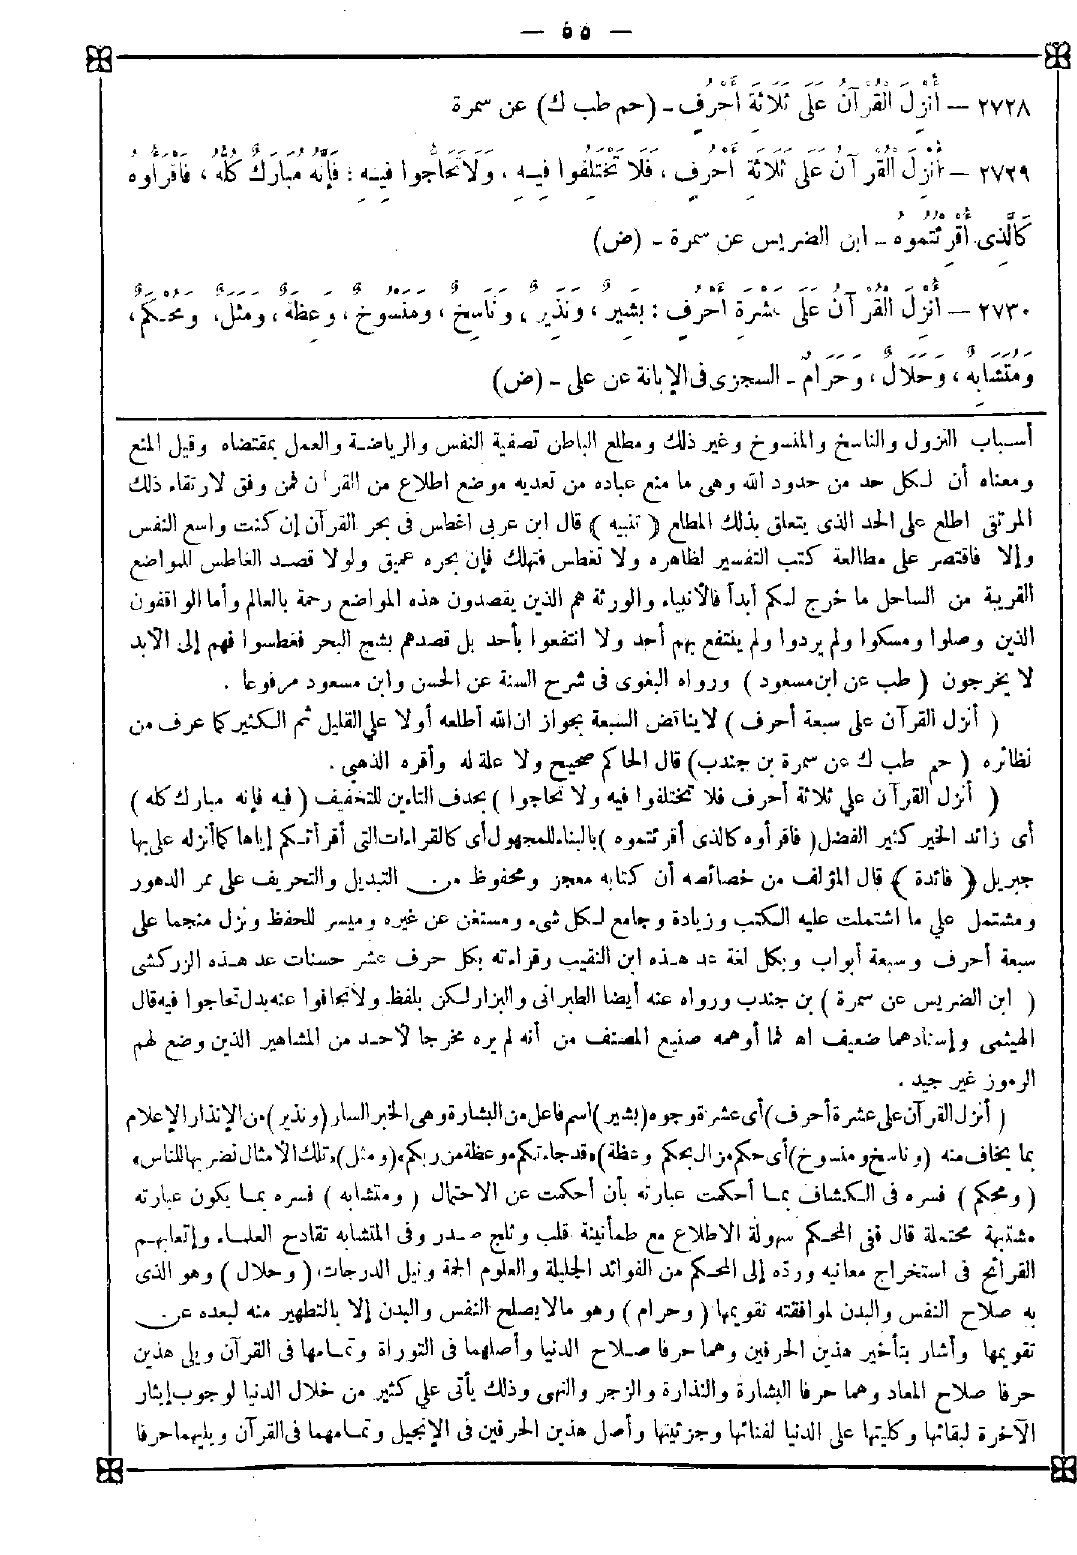 — ٥٥ —
٢٧٢٨ — أُنْزِلَ الْقُرْآنُ عَلَى ثَلَاثَةِ أَحْرُفٍ - (حم طب ك) عن سمرة
٢٧٢٩ — أُنْزِلَ الْقُرْآنُ عَلَى ثَلَاثَةِ أَحْرُفٍ ، فَلَا تَخْتَلِفُوا فِيهِ ، وَلَا تَحَاجُّوا فِيهِ ؛ فَإِنَّهُ مُبَارَكٌ كُلُّهُ ، فَاقْرَأُوهُ
كَالَّذِى أُقْرِئْتُمُوهُ - ابن الضريس عن سمرة - (ض)
٢٧٣٠ — أُنْزِلَ الْقُرْآنُ عَلَى عَشْرَةِ أَحْرُفٍ : بَشِيرٌ ، وَنَذِيرٌ ، وَنَاسِخٌ ، وَمَنْسُوخٌ ، وَعِظَةٌ ، وَمَثَلٌ ، وَمُحْكَمٌ ،
وَمُتَشَابِهٌ ، وَحَلَالٌ ، وَحَرَامٌ - السجزى فى الإبانة عن على - (ض)
أسباب النزول والناسخ والمنسوخ وغير ذلك ومطلع الباطن تصفية النفس والرياضة والعمل بمقتضاه وقيل المنع
ومعناه أن لكل حد من حدود الله وهى ما منع عباده من تعديه موضع اطلاع من القرآن فمن وفق لارتقاء ذلك
المرتقى اطلع على الحد الذى يتعلق بذلك المطلع ( تنبيه ) قال ابن عربى اغطس فى بحر القرآن إن كنت واسع النفس
وإلا فاقتصر على مطالعة كتب التفسير لظاهره ولا تغطس فتهلك فإن بحره عميق ولولا قصد الغاطس للمواضع
القريبة من الساحل ما خرج لكم أبداً فالأنبياء والورثة هم الذين يقصدون هذه المواضع رحمة بالعالم وأما الواقفون
الذين وصلوا ومسكوا ولم يردوا ولم ينتفع بهم أحد ولا انتفعوا بأحد بل قصدهم بثبج البحر فغطسوا فهم إلى الأبد
لا يخرجون ( طب عن ابن مسعود ) ورواه البغوى فى شرح السنة عن الحسن وابن مسعود مرفوعا .
( أنزل القرآن على سبعة أحرف ) لا يناقض السبعة بجواز ان الله أطلعه أولا على القليل ثم الكثير كما عرف من
نظائره ( حم طب ك عن سمرة بن جندب) قال الحاكم صحيح ولا علة له وأقره الذهبى .
( أنزل القرآن على ثلاثة أحرف فلا تختلفوا فيه ولا تحاجوا ) بحذف التاءين للتخفيف ( فيه فإنه مبارك كله )
أى زائد الخير كثير الفضل ( فاقرأوه كالذى أقرئتموه ) بالبناء للمجهول أى كالقراءات التى أقرأتكم إياها كما أنزله على بها
جبريل ( فائدة ) قال المؤلف من خصائصه أن كتابه معجز ومحفوظ من التبديل والتحريف على ممر الدهور
ومشتمل على ما اشتملت عليه الكتب وزيادة وجامع لكل شىء ومستغن عن غيره وميسر للحفظ ونزل منجما على
سبعة أحرف وسبعة أبواب وبكل لغة عد هذه ابن النقيب وقراءته بكل حرف عشر حسنات عد هذه الزركشى
( ابن الضريس عن سمرة ) بن جندب ورواه عنه أيضا الطبرانى والبزار لكن بلفظ ولا تجافوا عنه بدل تحاجوا فيه قال
الهيثمى وإسنادهما ضعيف اه فما أوهمه صنيع المصنف من أنه لم يره مخرجا لأحد من المشاهير الذين وضع لهم
الرموز غير جيد .
( أنزل القرآن على عشرة أحرف ) أى عشرة وجوه ( بشير ) اسم فاعل من البشارة وهى الخبر السار ( ونذير ) من الإنذار الإعلام
بما يخاف منه ( وناسخ ومنسوخ ) أى حكم مزال بحكم ( وعظة ) «قد جاءتكم موعظة من ربكم» ( ومثل ) «تلك الأمثال نضربها للناس»
( ومحكم ) فسره فى الكشاف بما أحكمت عبارته بأن أحكمت عن الاحتمال ( ومتشابه ) فسره بما يكون عبارته
مشتبهة محتملة قال ففى المحكم سهولة الاطلاع مع طمأنينة قلب وثلج صدر وفى المتشابه تقادح العلماء وإتعابهم
القرائح فى استخراج معانيه ورده إلى المحكم من الفوائد الجليلة والعلوم الجمة ونيل الدرجات ( وحلال ) وهو الذى
به صلاح النفس والبدن لموافقته تقويمها ( وحرام ) وهو مالا يصلح النفس والبدن إلا بالتطهير منه لبعده عن
تقويمها وأشار بتأخير هذين الحرفين وهما حرفا صلاح الدنيا وأصلهما فى التوراة وتمامها فى القرآن ويلى هذين
حرفا صلاح المعاد وهما حرفا البشارة والنذارة والزجر والنهى وذلك يأتى على كثير من خلال الدنيا لوجوب إيثار
الآخرة لبقائها وكليتها على الدنيا لفنائها وجزئيتها وأصل هذين الحرفين فى الإنجيل وتمامهما فى القرآن ويليهما حرفا